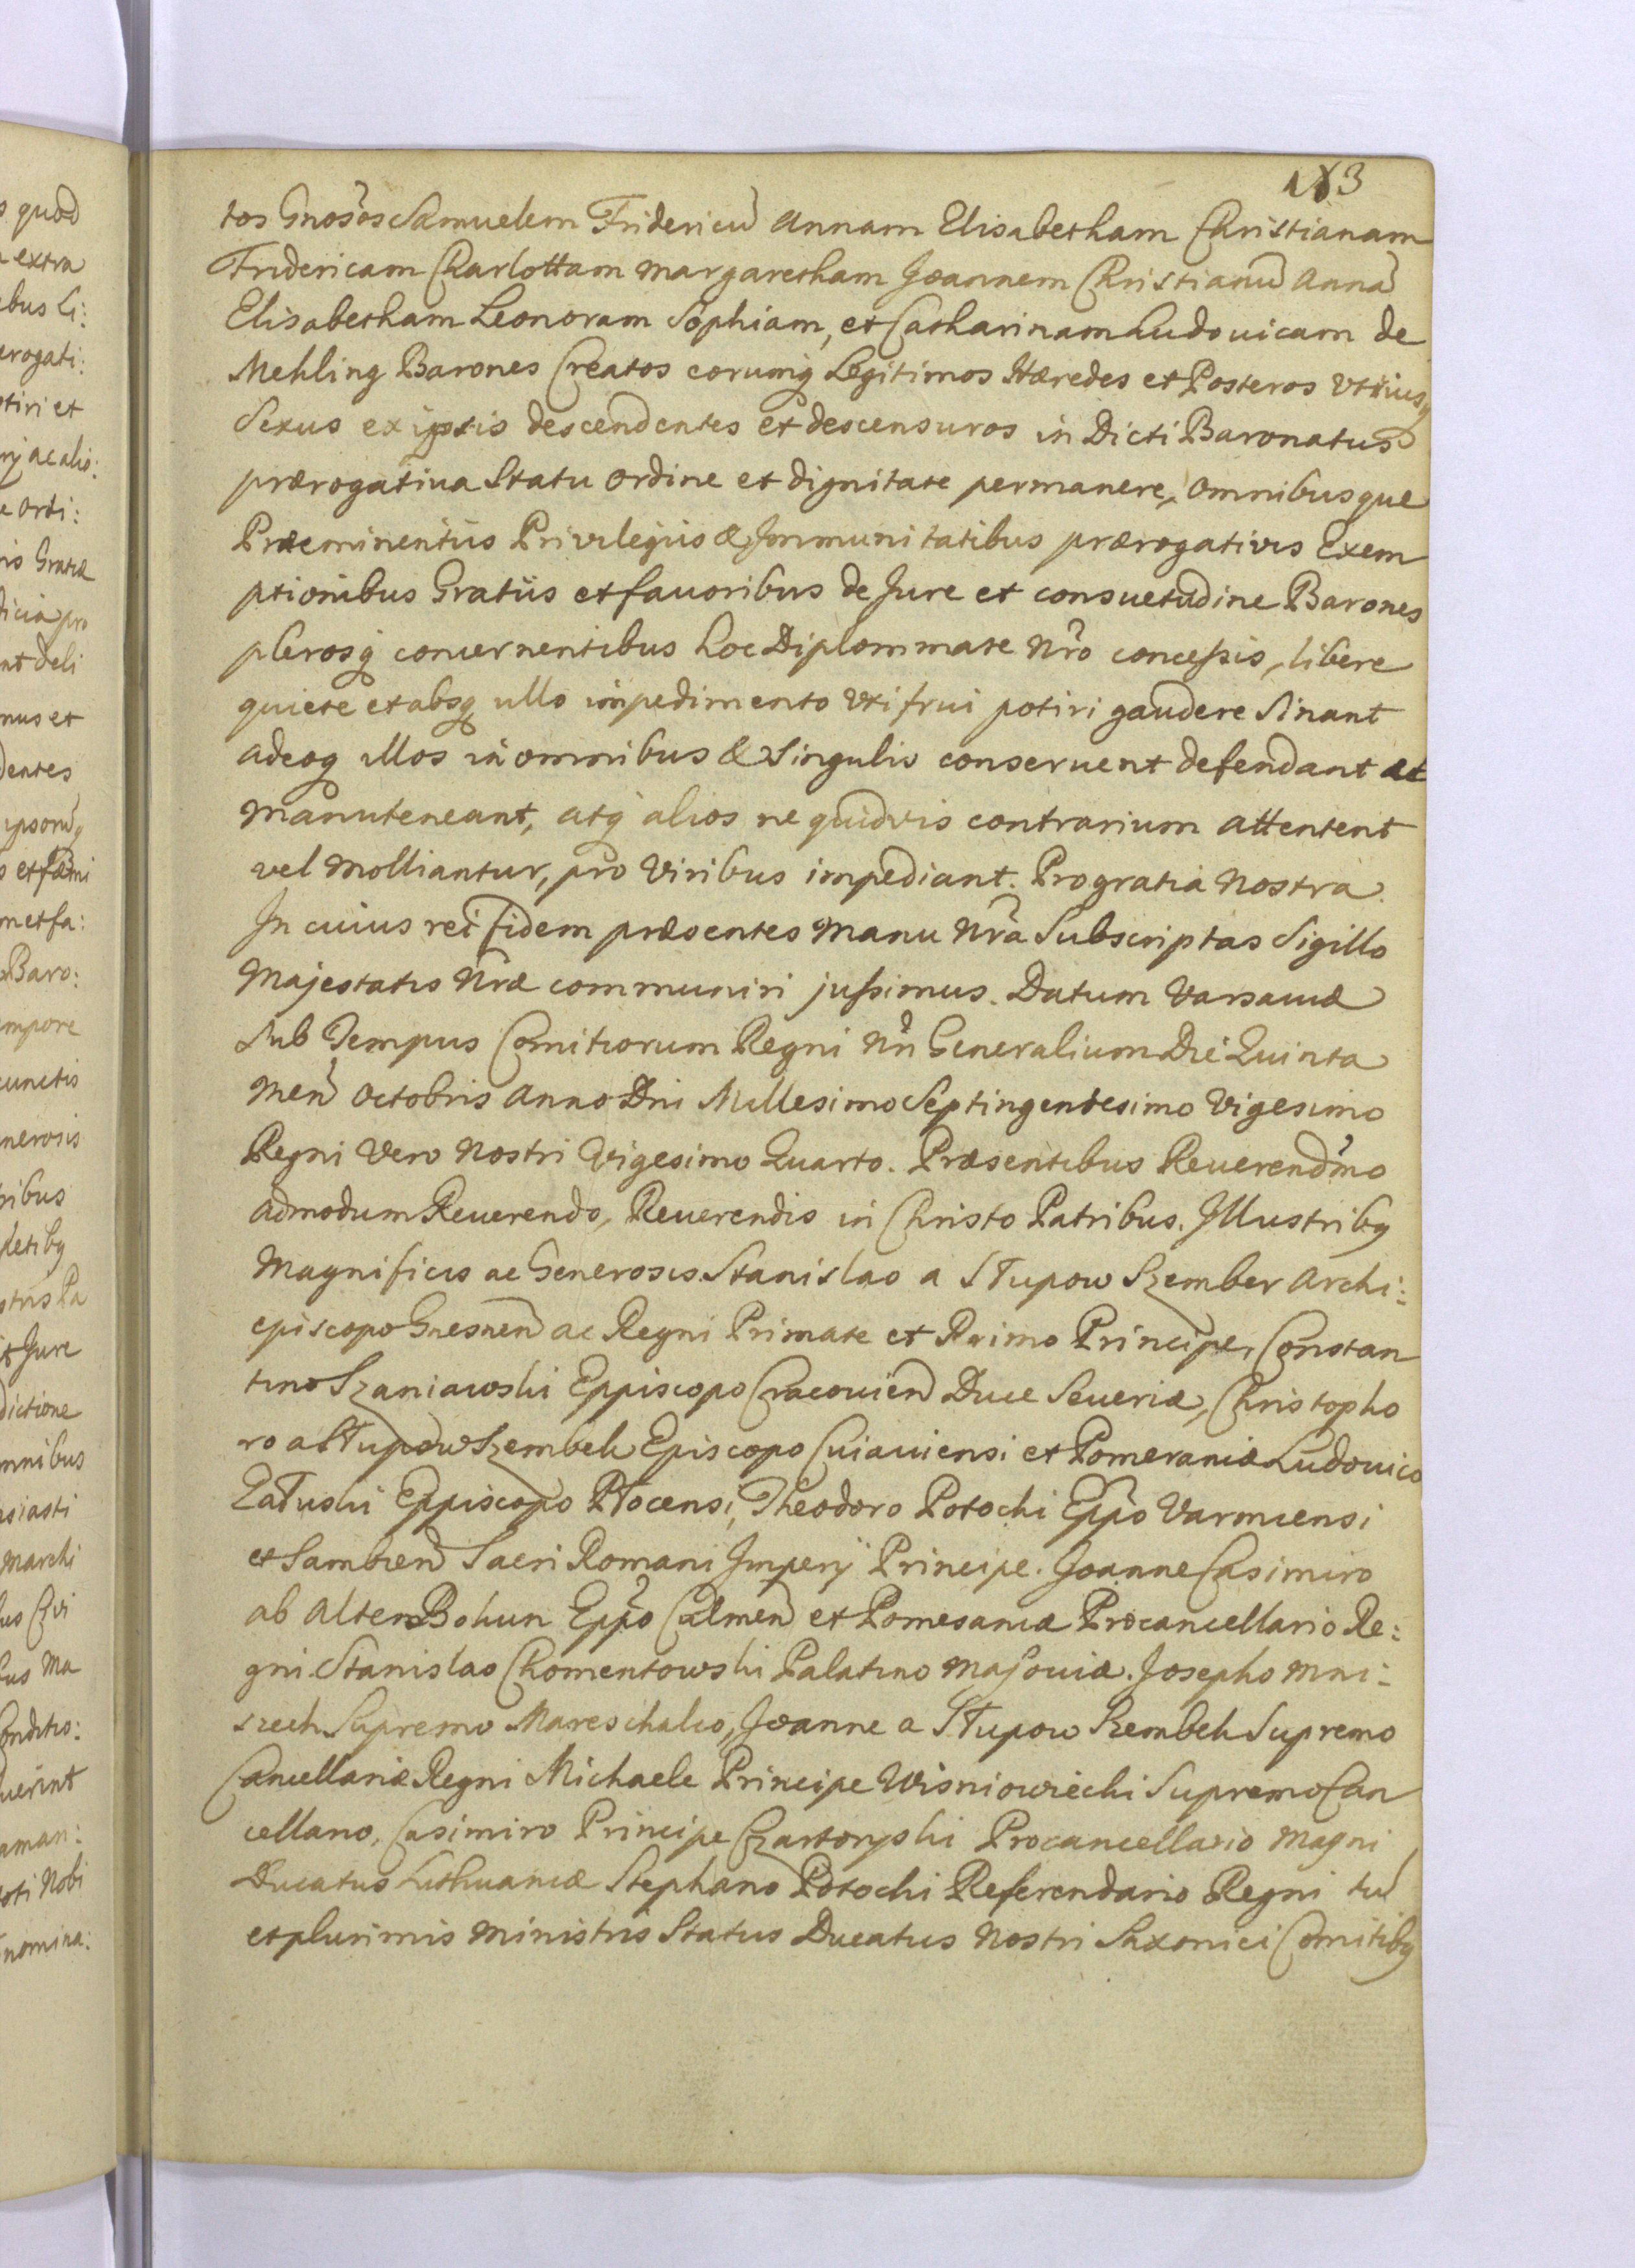 183
tos Gnosos Samuelem Fridericũ Annam Elisabetham Christianam
Fridericam Charlottam Margaretham Joannem Christianũ Annã
Elisabetham Leonoram Sophiam, et Catharinam Ludovicam de
Mehling Barones Creatos eorumq Legitimos Hæredes et Posteros Utriusq
Sexus ex ipsis descendentes et descensuros in Dicti Baronatus
prærogativa Statu Ordine et dignitate permanere, Omnibusque
Præeminentiis Privilegiis & Immunitatibus prærogativis Exem
ptionibus Gratiis et favoribus de Jure et consuetudine Barones
plerosq concernentibus hoc Diplommate Nr̃o concessis, libere
quiete et absq ullo impedimento Uti frui potiri gaudere Sinant
adeoq illos in omnibus & Singulis conservent defendant et
Manuteneant, atq alios ne quidvis contrarium attentent
vel Molliantur, pro Viribus impediant. Pro gratia Nostra.
In cuius rei fidem præsentes Manu Nr̃a Subscriptas Sigillo
Majestatis Nr̃æ communiri jussimus. Datum Varsaviæ
Sub Tempus Comitiorum Regni Nr̃i Generalium Die Quinta
Men̄ Octobris Anno Dni Millesimo Septingentesimo Vigesimo
Regni Vero Nostri Vigesimo Quarto. Præsentibus Reverendm̃o
admodum Reverendo, Reverendis in Christo Patribus. Illustribq
Magnificis ac Generosis Stanislao a STupow Szember Archi:
episcopo Gnesnen̄ ac Regni Primate et Primo Principe, Constan
tino Szaniawski Eppiscopo Cracovien̄ Duce Severiæ, Christopho
ro a STupow Szembek Episcopo Cuiaviensi et Pomeraniæ Ludovico
ZaTuski Eppiscopo PTocensi, Theodoro Potocki Epp̃o Varmiensi
et Sambien̄ Sacri Romani Imperij Principe. Joanne Casimiro
ab Alten Bokun Epp̃o Culmen̄ et Pomesaniæ Procancellario Re:
gni Stanislao Chomentowski Palatino Masoviæ. Josepho Mni:
szech Supremo Mareschalco, Joanne a STupow Szembek Supremo
Cancellariæ Regni Michaele Principe Wisniowiecki Supremo Can
cellario, Casimiro Principe Czartoryski Procancellario Magni
Ducatus Lithuaniæ Stephano Potocki Referendario Regni tũ
et plurimis Ministris Status Ducatus Nostri Saxonici Comitibq